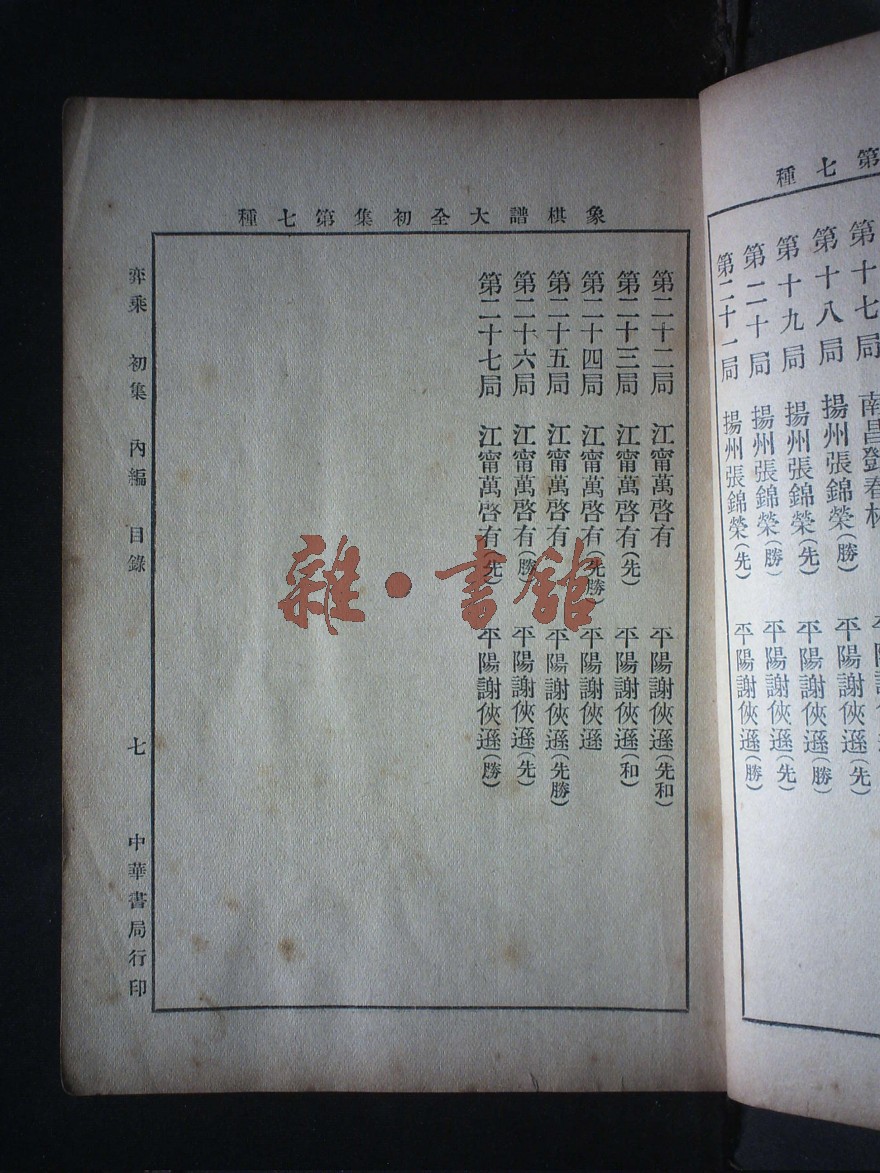 第七種
第十七局 南昌鄧春林
第十八局 揚州張錦榮(勝) 平陽謝俠遜(先)
第十九局 揚州張錦榮(先) 平陽謝俠遜(勝)
第二十局 揚州張錦榮(勝) 平陽謝俠遜(先)
第二十一局 揚州張錦榮(先) 平陽謝俠遜(勝)
象棋譜大全初集第七種
第二十二局 江甯萬啓有 平陽謝俠遜(先和)
第二十三局 江甯萬啓有(先) 平陽謝俠遜(和)
第二十四局 江甯萬啓有(先勝) 平陽謝俠遜
第二十五局 江甯萬啓有 平陽謝俠遜(先勝)
第二十六局 江甯萬啓有(勝) 平陽謝俠遜(先)
第二十七局 江甯萬啓有(先) 平陽謝俠遜(勝)
弈乘 初集 內編 目錄 七 中華書局行印
雜·書館